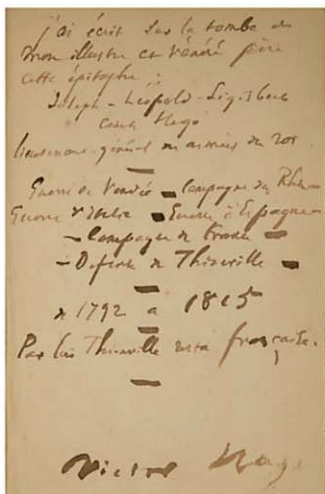 j'ai écrit sur la tombe de
mon illustre et vénéré père
cette épitaphe :
Joseph-Léopold-Sigisbert
comte Hugo
lieutenant-général des armées du roi.
Guerre de Vendée — Campagne du Rhin —
Guerre d'Italie — Guerre d'Espagne —
— Campagne de France —
— Défense de Thionville —
de 1792 à 1815
Par lui Thionville resta française.
Victor Hugo